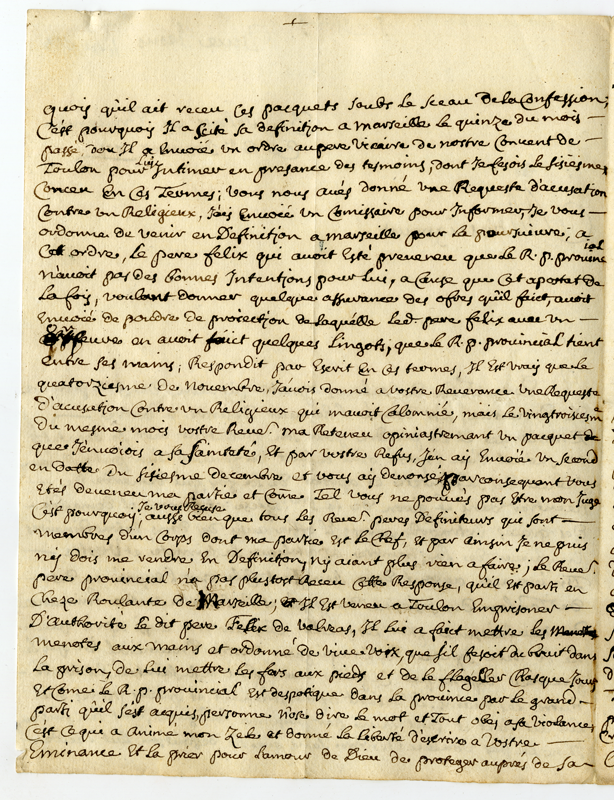 quois qu'il ait receu ces pacquets soubs le sceau de la Confession;
C'est pourquoy Il a scité sa definition a Marseille le quinze du mois
passe, dou Il a Envoié un ordre au pere vicaire de nostre Convent de
Toulon pour luy Intimer en presance des tesmoins, dont Je fesois le sisiesme
Conceu En ces Termes; vous nous avés donné une Requeste d'acusation
Contre un Religieux, J'ais Envoié un Comissaire pour Informer, Je vous
ordonne de venir en Definition a marseille pour la poursuivre; a
Cet ordre, Le pere felix qui avoit Esté preveneu que le R. p. provincial
n'avoit pas des bonnes Intentions pour Lui, a Cause que Cet apostat de
La fois, voulant donner quelque assurance des ofres qu'il faict, avoit
Envoié de poudre de projection de laquelle Led. pere felix avec un
feuve en avoit faict quelques Lingots, que le R. p. provincial tient
entre ses mains; Respondit par Escrit En ces termes, Il Est vrai que le
quatorziesme de Novembre, J'avois donné a vostre Reverance une Requeste
D'acusation Contre un Religieux qui m'avoit Calomnié, mais le vingtroisiesme
Du mesme mois vostre Reve.ce ma Reteneu opiniastremant un pacquet
que J'envoiois a sa Sainteté, Et par vostre Refus, J'en ay Envoié un second
en datte du sisiesme decembre et vous ay denonsé, par consequent vous
Etés deveneu ma partie et come Tel vous ne pouvés pas Etre mon Juge
C'est pourquoy, Je vous Recuse aussi bien que tous les Reve.ds peres Definiteurs qui sont
membres d'un Corps dont ma partie Est le Chef, Et par ainsin Je ne puis
nij dois me rendre En Definition, nij aiant plus rien a faire; Le Reve.d
pere provincial na pas plustost Receu Cette Response, qu'il Est parti en
Cheze Roulante de Marseille, et Il Est veneu a Toulon Emprisoner
D'authorité Le dit pere Felix de valreas, Il Lui a faict mettre les
menotes aux mains et ordonné de vive voix, que s'il fesoit du bruit dans
La prison, de Lui mettre les fers aux pieds et de le flageller Chasque Jour
Et Come le R. p. provincial Est despotique dans la province par le grand
parti qu'il s'est acquis, personne n'ose dire le mot et Tout obei a sa violance
C'est Ce qui a Animé mon Zele et donné la liberté d'escrire a Vostre
Eminance Et la prier pour l'amour de Dieu de proteger auprés de sa